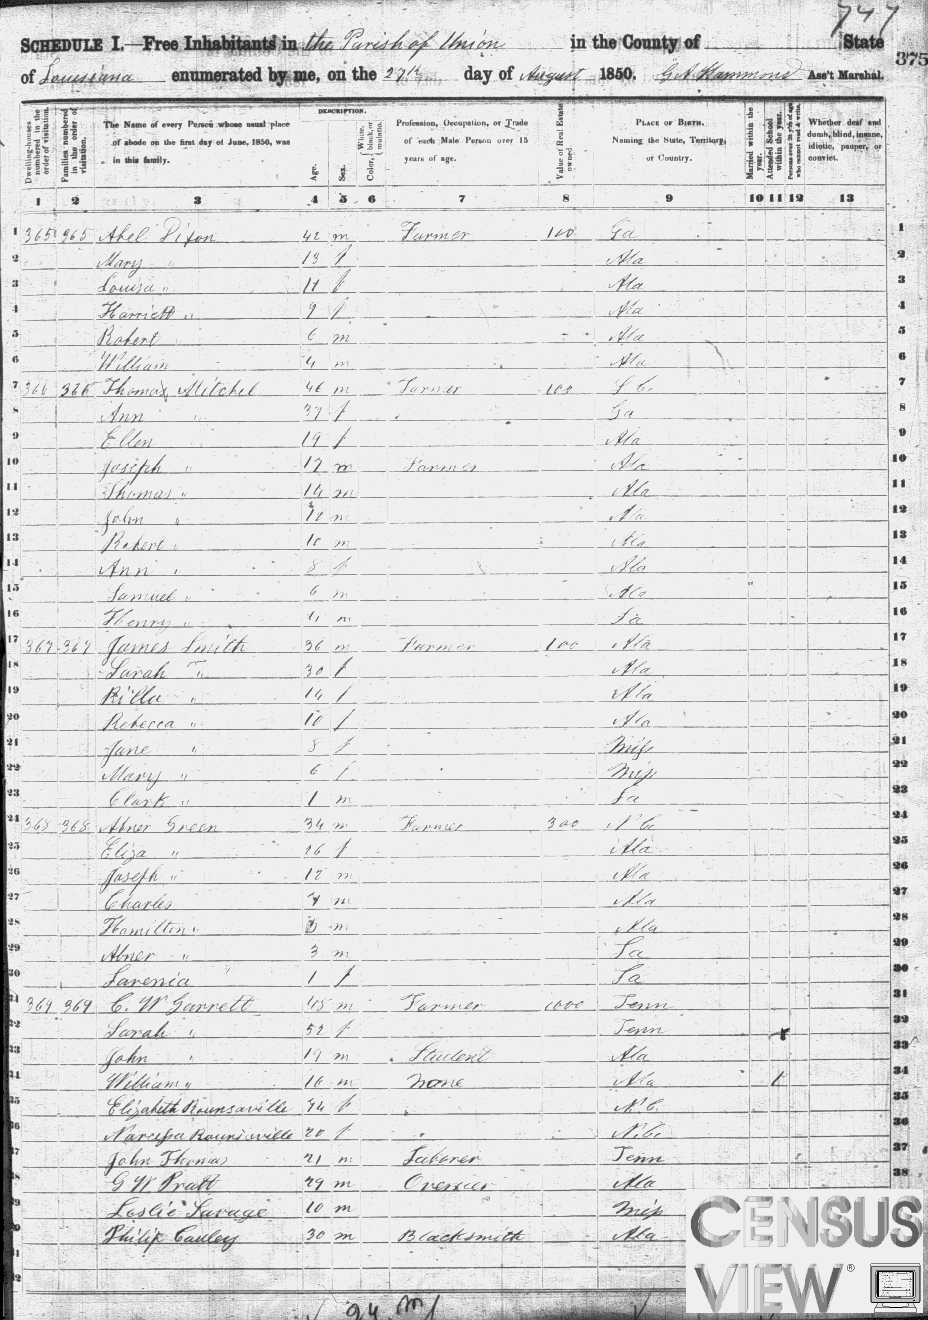 747
SCHEDULE I.—Free Inhabitants in the Parish of Union in the County of State
of Louisiana enumerated by me, on the 27th day of August 1850. G A Hammond Ass't Marshal.
375
Dwelling-houses numbered in the order of visitation.
Families numbered in the order of visitation.
The Name of every Person whose usual place of abode on the first day of June, 1850, was in this family.
DESCRIPTION.
Age.
Sex.
Color, White, black, or mulatto.
Profession, Occupation, or Trade of each Male Person over 15 years of age.
Value of Real Estate owned.
PLACE OF BIRTH. Naming the State, Territory, or Country.
Married within the year.
Attended School within the year.
Persons over 20 y'rs of age who cannot read & write.
Whether deaf and dumb, blind, insane, idiotic, pauper, or convict.
1 2 3 4 5 6 7 8 9 10 11 12 13
1 365 365 Abel Dixon 42 m Farmer 100 Ga 1
2 Mary " 13 f Ala 2
3 Louisa " 11 f Ala 3
4 Harriett " 9 f Ala 4
5 Robert 6 m Ala 5
6 William 4 m Ala 6
7 366 366 Thomas Mitchel 46 m Farmer 100 S C. 7
8 Ann " 37 f Ga 8
9 Ellen 19 f Ala 9
10 Joseph " 17 m Farmer Ala 10
11 Thomas " 14 m Ala 11
12 John " 12 m Ala 12
13 Robert " 10 m Ala 13
14 Ann " 8 f Ala 14
15 Samuel " 6 m Ala 15
16 Henry " 4 m La 16
17 367 367 James Smith 36 m Farmer 100 Ala 17
18 Sarah " 30 f Ala 18
19 Rilla " 14 f Ala 19
20 Rebecca " 10 f Ala 20
21 Jane " 8 f Miss 21
22 Mary " 6 f Miss 22
23 Clark " 1 m La 23
24 368 368 Abner Green 34 m Farmer 300 N C. 24
25 Eliza " 26 f Ala 25
26 Joseph " 12 m Ala 26
27 Charles 7 m Ala 27
28 Hamilton " m Ala 28
29 Abner " 3 m La 29
30 Lavenia " 1 f La 30
31 369 369 C. W Garrett 45 m Farmer 1000 Tenn 31
32 Sarah " 52 f Tenn 32
33 John " 19 m Student Ala 33
34 William " 16 m None Ala 1 34
35 Elizabeth Rounsaville 74 f N. C. 35
36 Narcissa Rounsaville 20 f N. C. 36
37 John Thomas 21 m Laborer Tenn 37
38 G W Pratt 29 m Overseer Ala 38
39 Leslie Savage 10 m Miss
40 Philip Cauley 30 m Blacksmith Ala
41
42
24 M
CENSUS
VIEW ®